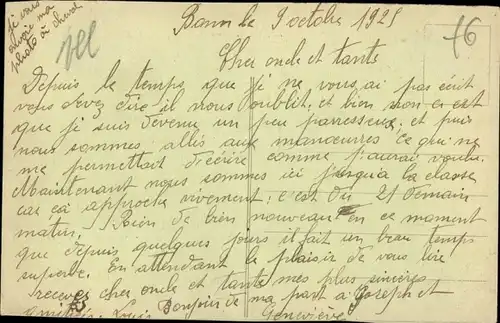 je vous
envoie ma
photo à cheval
le 9 octobre 1925
Cher oncle et tante
Depuis le temps que je ne vous ai pas écrit
vous devez dire il nous oublit, et bien non c'est
que je suis devenu un peu paresseux, et puis
nous sommes allés aux manœuvres ce qui ne
me permettait d'écrire comme j'aurai voulu.
Maintenant nous sommes ici jusqu'à la classe
car ça approche vivement; c'est du 21 demain
matin. Rien de bien nouveau en ce moment
que depuis quelques jours il fait un beau temps
superbe. En attendant le plaisir de vous lire
recevez cher oncle et tante mes plus sincères
Louis Bonjour de ma part à Joseph et
Geneviève